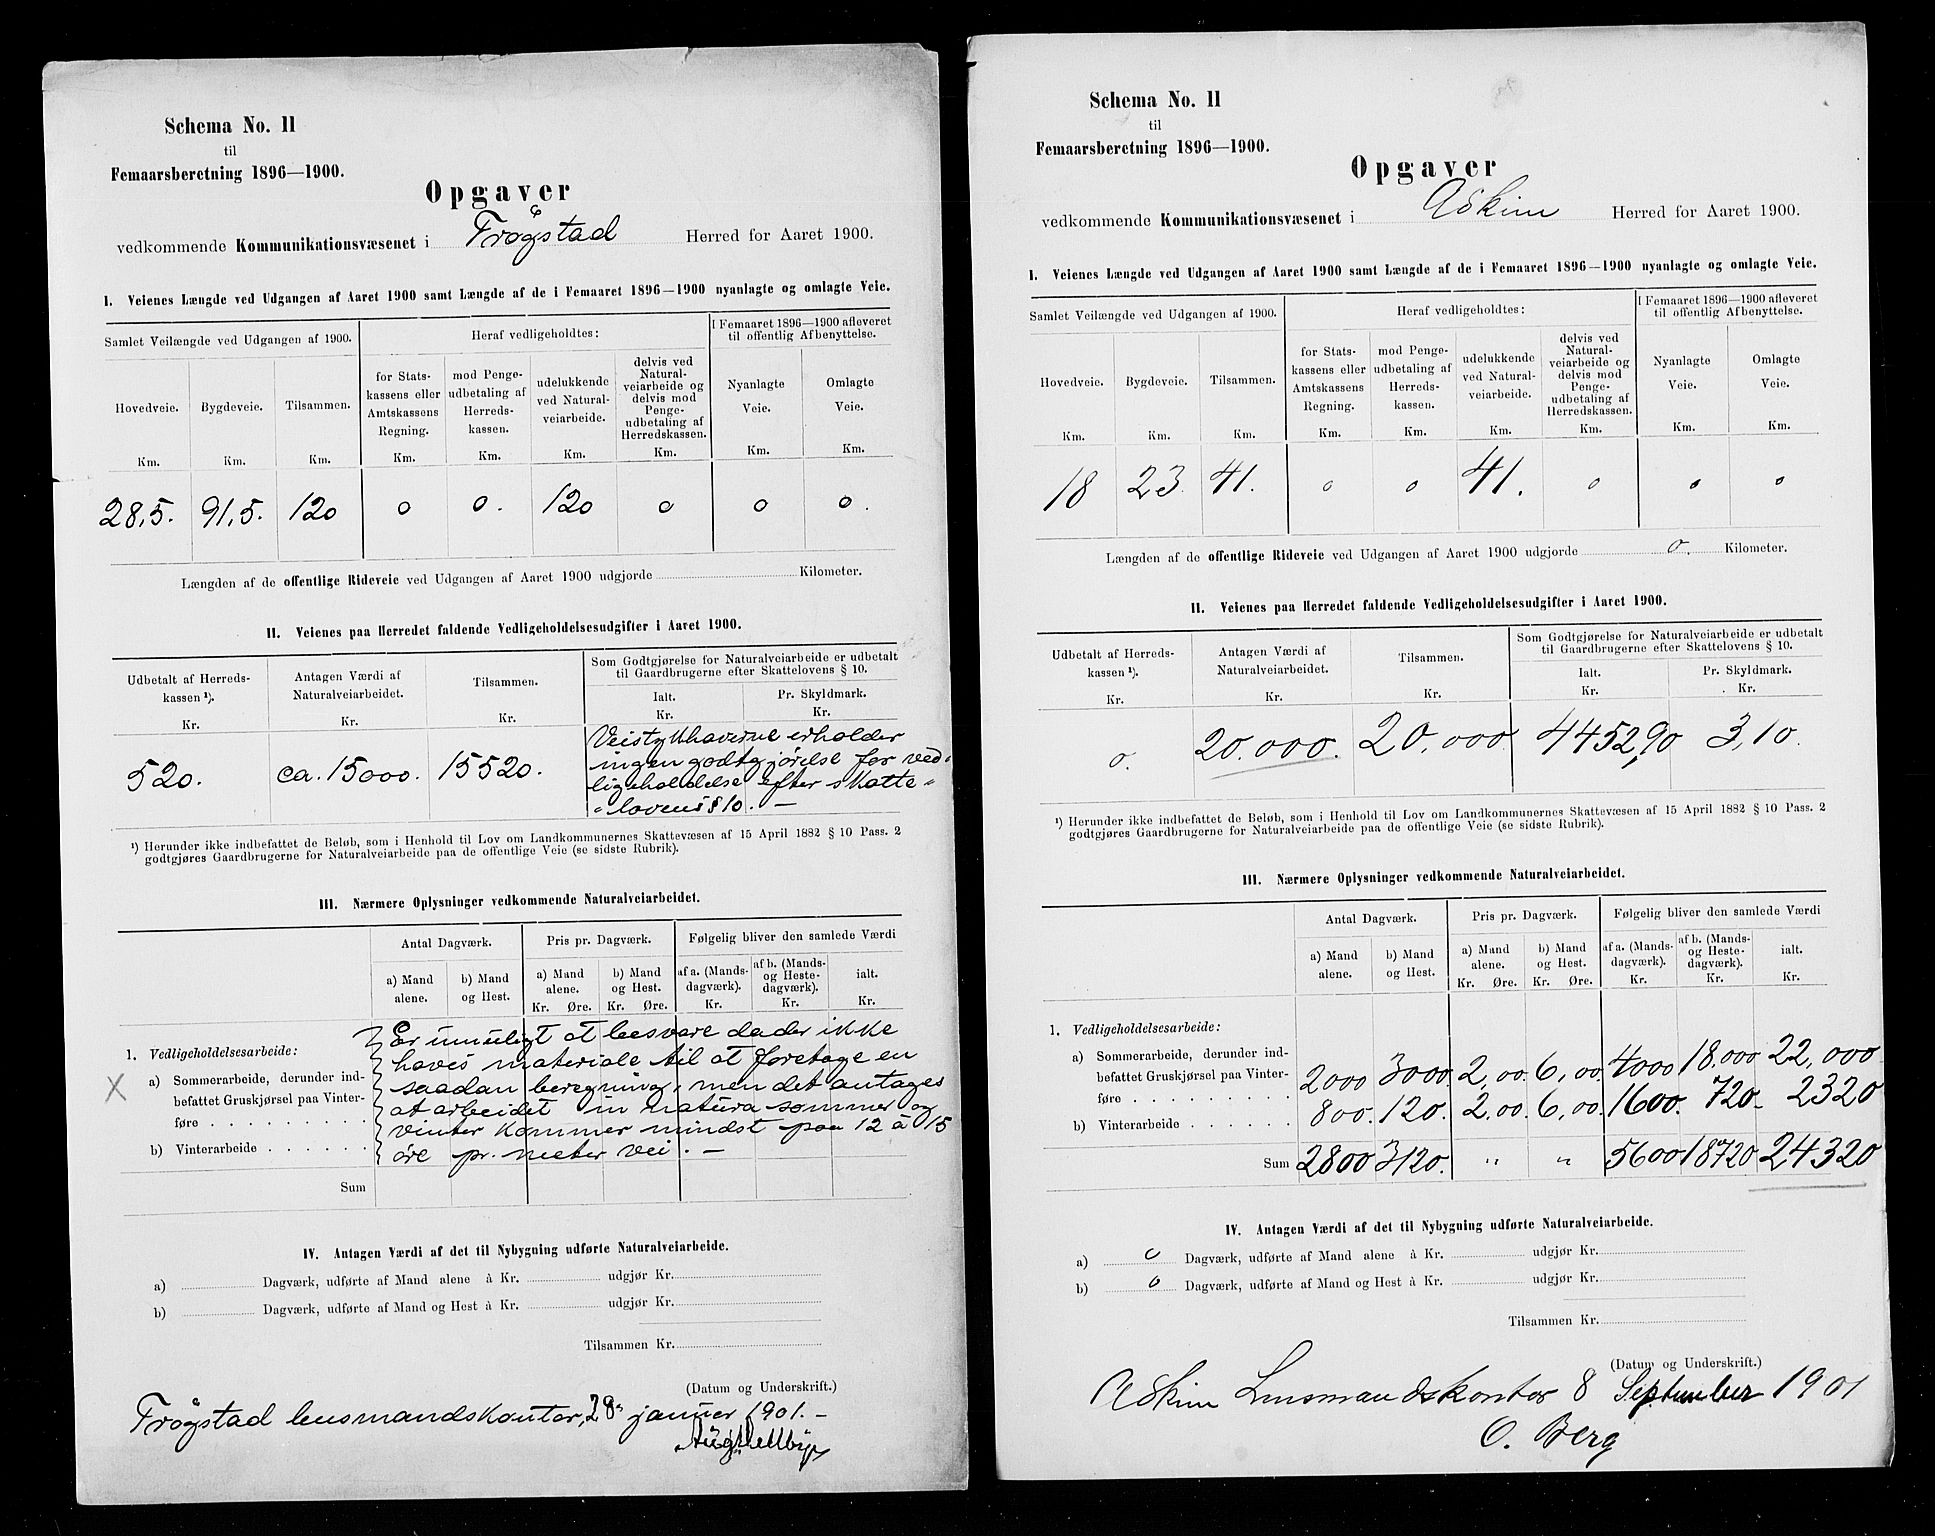 Schema No. 11
til
Femaarsberetning 1896—1900.
Opgaver
vedkommende Kommunikationsvæsenet i Trøgstad Herred for Aaret 1900.
I. Veienes Længde ved Udgangen af Aaret 1900 samt Længde af de i Femaaret 1896—1900 nyanlagte og omlagte Veie.
Samlet Veilængde ved Udgangen af 1900. Heraf vedligeholdtes: I Femaaret 1896—1900 afleveret til offentlig Afbenyttelse.
Hovedveie. Bygdeveie. Tilsammen. for Statskassens eller Amtskassens Regning. mod Pengeudbetaling af Herredskassen. udelukkende ved Naturalveiarbeide. delvis ved Naturalveiarbeide og delvis mod Pengeudbetaling af Herredskassen. Nyanlagte Veie. Omlagte Veie.
Km. Km. Km. Km. Km. Km. Km. Km. Km.
28,5. 91,5. 120 0 0. 120 0 0 0.
Længden af de offentlige Rideveie ved Udgangen af Aaret 1900 udgjorde Kilometer.
II. Veienes paa Herredet faldende Vedligeholdelsesudgifter i Aaret 1900.
Udbetalt af Herredskassen ¹). Antagen Værdi af Naturalveiarbeidet. Tilsammen. Som Godtgjørelse for Naturalveiarbeide er udbetalt til Gaardbrugerne efter Skattelovens § 10.
Ialt. Pr. Skyldmark.
Kr. Kr. Kr. Kr. Kr.
520. ca. 15000. 15520.
Veistykkhaverne erholder
ingen godtgjørelse for ved-
ligeholdelse efter skatte-
lovens § 10. —
¹) Herunder ikke indbefattet de Beløb, som i Henhold til Lov om Landkommunernes Skattevæsen af 15 April 1882 § 10 Pass. 2
godtgjøres Gaardbrugerne for Naturalveiarbeide paa de offentlige Veie (se sidste Rubrik).
III. Nærmere Oplysninger vedkommende Naturalveiarbeidet.
Antal Dagværk. Pris pr. Dagværk. Følgelig bliver den samlede Værdi
a) Mand alene. b) Mand og Hest. a) Mand alene. b) Mand og Hest. af a. (Mandsdagværk). af b. (Mands- og Hestedagværk). ialt.
Kr. Øre. Kr. Øre. Kr. Kr. Kr.
1. Vedligeholdelsesarbeide:
a) Sommerarbeide, derunder ind-
befattet Gruskjørsel paa Vinter-
føre
b) Vinterarbeide
Sum
Er umuligt at besvare da der ikke
haves materiale til at foretage en
saadan beregning, men det antages
at arbeidet in natura sommer og
vinter kommer mindst paa 12 à 15
øre pr. meter vei. —
X
IV. Antagen Værdi af det til Nybygning udførte Naturalveiarbeide.
a) Dagværk, udførte af Mand alene à Kr. udgjør Kr.
b) Dagværk, udførte af Mand og Hest à Kr. udgjør Kr.
Tilsammen Kr.
(Datum og Underskrift.)
Trøgstad lensmandskontor, 28 januer 1901. —
Schema No. 11
til
Femaarsberetning 1896—1900.
Opgaver
vedkommende Kommunikationsvæsenet i Askim Herred for Aaret 1900.
I. Veienes Længde ved Udgangen af Aaret 1900 samt Længde af de i Femaaret 1896—1900 nyanlagte og omlagte Veie.
Samlet Veilængde ved Udgangen af 1900. Heraf vedligeholdtes: I Femaaret 1896—1900 afleveret til offentlig Afbenyttelse.
Hovedveie. Bygdeveie. Tilsammen. for Statskassens eller Amtskassens Regning. mod Pengeudbetaling af Herredskassen. udelukkende ved Naturalveiarbeide. delvis ved Naturalveiarbeide og delvis mod Pengeudbetaling af Herredskassen. Nyanlagte Veie. Omlagte Veie.
Km. Km. Km. Km. Km. Km. Km. Km. Km.
18 23. 41. 0 0 41. 0 0 0
Længden af de offentlige Rideveie ved Udgangen af Aaret 1900 udgjorde 0. Kilometer.
II. Veienes paa Herredet faldende Vedligeholdelsesudgifter i Aaret 1900.
Udbetalt af Herredskassen ¹). Antagen Værdi af Naturalveiarbeidet. Tilsammen. Som Godtgjørelse for Naturalveiarbeide er udbetalt til Gaardbrugerne efter Skattelovens § 10.
Ialt. Pr. Skyldmark.
Kr. Kr. Kr. Kr. Kr.
0. 20.000. 20,000. 4452,90 3,10.
¹) Herunder ikke indbefattet de Beløb, som i Henhold til Lov om Landkommunernes Skattevæsen af 15 April 1882 § 10 Pass. 2
godtgjøres Gaardbrugerne for Naturalveiarbeide paa de offentlige Veie (se sidste Rubrik).
III. Nærmere Oplysninger vedkommende Naturalveiarbeidet.
Antal Dagværk. Pris pr. Dagværk. Følgelig bliver den samlede Værdi
a) Mand alene. b) Mand og Hest. a) Mand alene. b) Mand og Hest. af a. (Mandsdagværk). af b. (Mands- og Hestedagværk). ialt.
Kr. Øre. Kr. Øre. Kr. Kr. Kr.
1. Vedligeholdelsesarbeide:
a) Sommerarbeide, derunder ind-
befattet Gruskjørsel paa Vinter-
føre 2000 3000. 2,00. 6,00. 4000 18,000 22,000
b) Vinterarbeide 800. 120. 2,00. 6,00. 1600. 720. 2320
Sum 2800 3120. „ „ 5600 18720 24320
IV. Antagen Værdi af det til Nybygning udførte Naturalveiarbeide.
a) 0 Dagværk, udførte af Mand alene à Kr. udgjør Kr.
b) 0 Dagværk, udførte af Mand og Hest à Kr. udgjør Kr.
Tilsammen Kr.
(Datum og Underskrift.)
Askim Lensmandskontor 8 September 1901
O. Berg